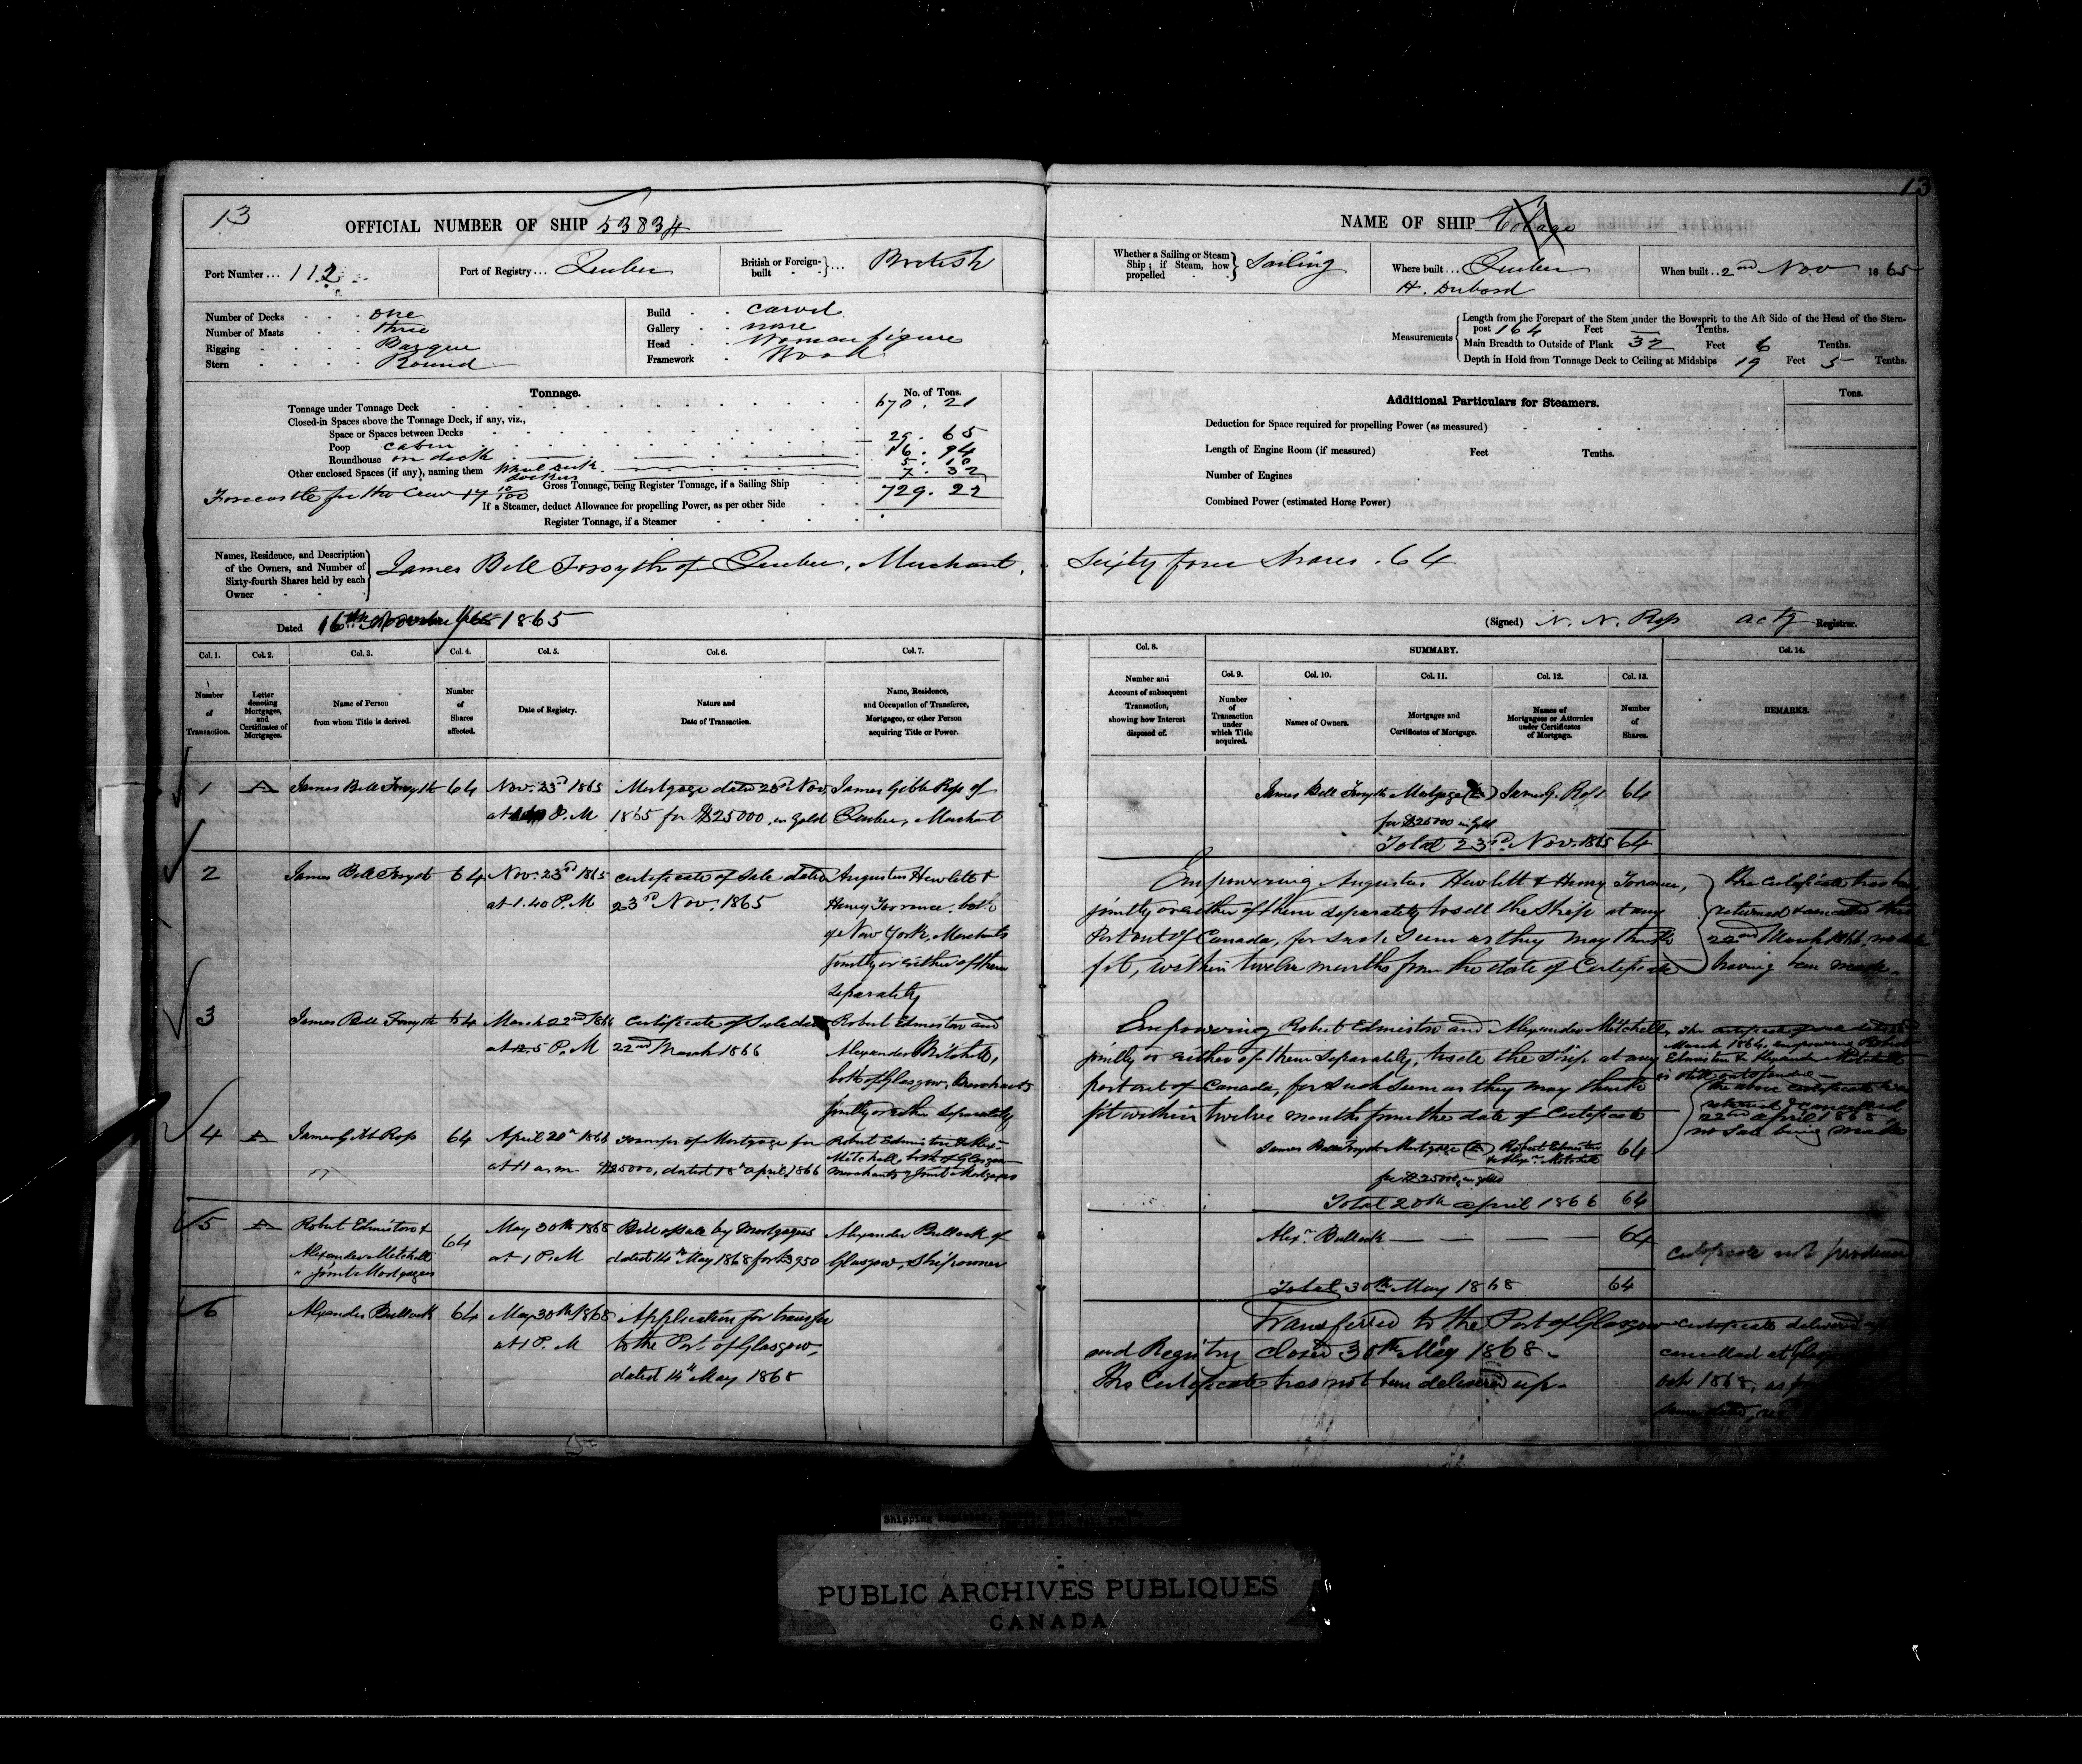 13
OFFICIAL NUMBER OF SHIP 53834
Port Number... 112
Port of Registry... Quebec
British or Foreign-built... British
Number of Decks one
Number of Masts three
Rigging Barque
Stern Round
Build carvel
Gallery none
Head Woman figure
Framework Wood
Tonnage.
No. of Tons.
Tonnage under Tonnage Deck 670.21
Closed-in Spaces above the Tonnage Deck, if any, viz.,
Space or Spaces between Decks
Poop cabin 29.65
Roundhouse on deck 16.94
Other enclosed Spaces (if any), naming them 5.10
7.32
Forecastle for the Crew 17 10/100
Gross Tonnage, being Register Tonnage, if a Sailing Ship 729.22
If a Steamer, deduct Allowance for propelling Power, as per other Side
Register Tonnage, if a Steamer
Names, Residence, and Description of the Owners, and Number of Sixty-fourth Shares held by each Owner
James Bell Forsyth of Quebec, Merchant,
Dated 16th November 1865
Col. 1. Col. 2. Col. 3. Col. 4. Col. 5. Col. 6. Col. 7.
Number of Transaction.
Letter denoting Mortgages, and Certificates of Mortgages.
Name of Person from whom Title is derived.
Number of Shares affected.
Date of Registry.
Nature and Date of Transaction.
Name, Residence, and Occupation of Transferee, Mortgagee, or other Person acquiring Title or Power.
1 A James Bell Forsyth 64 Nov. 23rd 1865 Mortgage dated 23rd Nov. James Gibb Ross of
at P.M 1865 for $25000, in gold Quebec, Merchant
2 James Bell Forsyth 64 Nov. 23rd 1865 certificate of Sale dated Augustus Hewlett &
at 1.40 P.M 23rd Nov. 1865 Henry Torrance, both
of New York, Merchants
jointly or either of them
separately
3 James Bell Forsyth 64 March 22nd 1866 certificate of Sale dated Robert Edmiston and
at 12.5 P.M 22nd March 1866 Alexander Mitchell,
both of Glasgow, Merchants
jointly or either separately
4 A James Gibb Ross 64 April 20th 1866 transfer of Mortgage for Robert Edmiston & Alexr
at 11 a.m $25000, dated 18th april, 1866 Mitchell, both of Glasgow
Merchants & Joint Mortgagees
5 A Robert Edmiston & 64 May 30th 1868 Bill of sale by Mortgagees Alexander Bullock of
Alexander Mitchell at 1 P.M dated 14th May 1868 for £3950 Glasgow, Shipowner
Joint Mortgagees
6 Alexander Bullock 64 May 30th 1868 Application for transfer
at 1 P.M to the Port of Glasgow,
dated 14th May 1868
13
NAME OF SHIP
Whether a Sailing or Steam Ship; if Steam, how propelled Sailing
Where built... Quebec
H. Dubord
When built.. 2nd Nov 1865
Measurements
Length from the Forepart of the Stem under the Bowsprit to the Aft Side of the Head of the Stern-
post 164 Feet — Tenths.
Main Breadth to Outside of Plank 32 Feet 6 Tenths.
Depth in Hold from Tonnage Deck to Ceiling at Midships 19 Feet 5 Tenths.
Additional Particulars for Steamers.
Tons.
Deduction for Space required for propelling Power (as measured)
Length of Engine Room (if measured) Feet Tenths.
Number of Engines
Combined Power (estimated Horse Power)
Sixty four Shares. 64
(Signed) N. N. Ross actg Registrar.
Col. 8.
Number and Account of subsequent Transaction, showing how Interest disposed of.
SUMMARY.
Col. 9. Col. 10. Col. 11. Col. 12. Col. 13. Col. 14.
Number of Transaction under which Title acquired.
Names of Owners.
Mortgages and Certificates of Mortgage.
Names of Mortgagees or Attornies under Certificates of Mortgage.
Number of Shares.
REMARKS.
James Bell Forsyth Mortgage (A) James G. Ross 64
for $25000 in gold
Total 23rd Nov. 1865 64
Empowering Augustus Hewlett & Henry Torrance,
jointly or either of them separately to sell the Ship at any
Port out of Canada, for such Sum as they may think
fit, within twelve months from the date of Certificate
The certificate has been
returned & cancelled this
22nd March 1866, no sale
having been made.
Empowering Robert Edmiston and Alexander Mitchell,
jointly or either of them separately, to sell the Ship at any
port out of Canada, for such Sum as they may think
fit within twelve months from the date of Certificate
The certificate of sale dated 22
March 1866, empowering Robert
Edmiston & Alexander Mitchell
is still outstanding
The above certificate was
returned & cancelled
22nd april 1868
no Sale being made
James Bell Forsyth Mortgage (A) Robert Edmiston 64
& Alexr Mitchell
for $25000, in gold
Total 20th april 1866 64
Alexr Bullock — — — — 64
certificate not produced
Total 30th May 1868 64
Transferred to the Port of Glasgow
and Registry closed 30th May 1868.
The Certificate has not been delivered up.
certificate delivered up
cancelled at
Oct 1868, as
Shipping Register,
PUBLIC ARCHIVES PUBLIQUES
CANADA